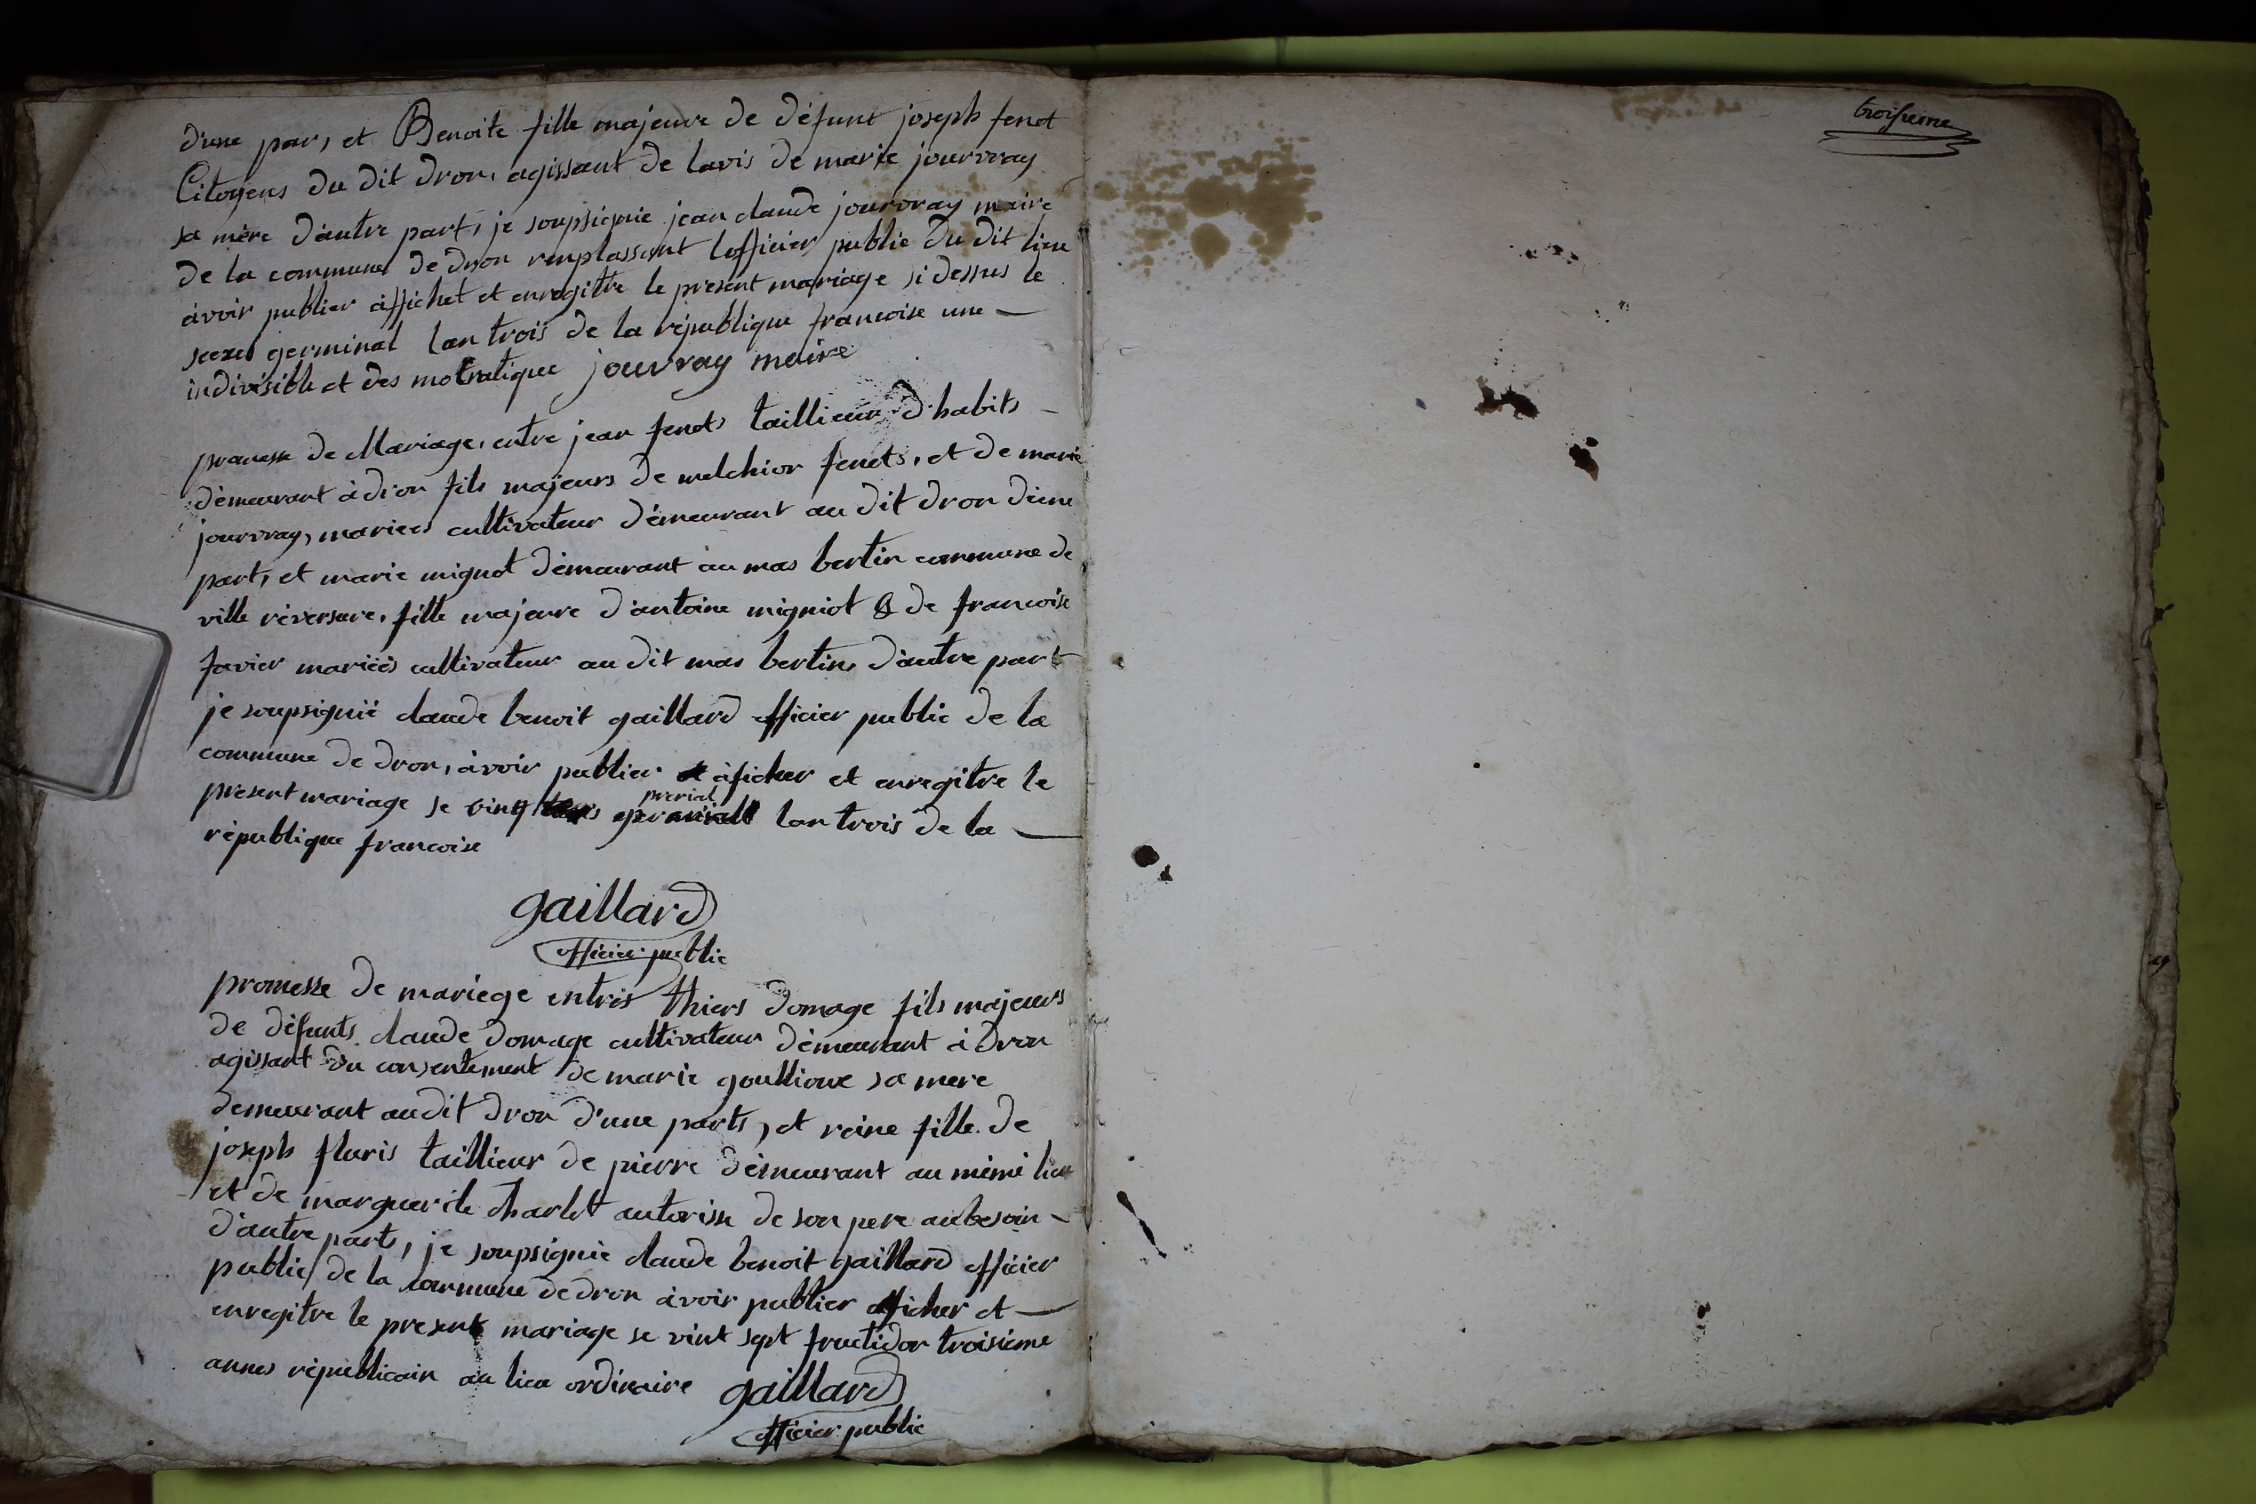 d'une par, et Benoite fille majeure de défunt joseph fenet
Citoyens du dit dron, agissant de lavis de marie jourvray
sa mère d'autre part, je soupsignie jean claude jourvray maire
de la commune de dron remplassant lofficier public du dit lieu
àvoir publier àffichet et enregitre le present mariage si dessus le
seexe germinal lan trois de la république francoise une —
indivisible et des mocratique jouvray maire
promesse de Mariage, entre jean fenets taillieur d'habits —
dèmeurant à dron fils majeurs de melchior fenets, et de marie
jourvray, mariees cultivateur dèmeurant au dit dron dune
part, et marie mignot dèmeurant au mas bertin commune de
ville réversure, fille majeure d'antoine migniot & de francoise
favier mariéès cultivateur au dit mas bertin, d'autre part
je soupsignié claude benoit gaillard officier public de la
commune de dron, àvoir publier àficher et enregitre le
present mariage se ving prerial lan trois de la —
république francoise
gaillard
officier public
promesse de mariege entres thiers domage fils majeurs
de défunts claude domage cultivateur dèmeurant à dron
agissant du consentement de marie goullioux sa mere
demeurant au dit dron d'une parts, et reine fille de
joseph fluris taillieur de pierre dèmeurant au mêmé lieu
et de marguerite charlet autorisse de son pere au besoin —
d'autre parts, je soupsignie claude benoit gaillard officier
public de la commune de dron àvoir publier afficher et —
enregitre le present mariage se vint sept fructidor troisième
annes républicain au lieu ordinaire gaillard
officier public
troisieme